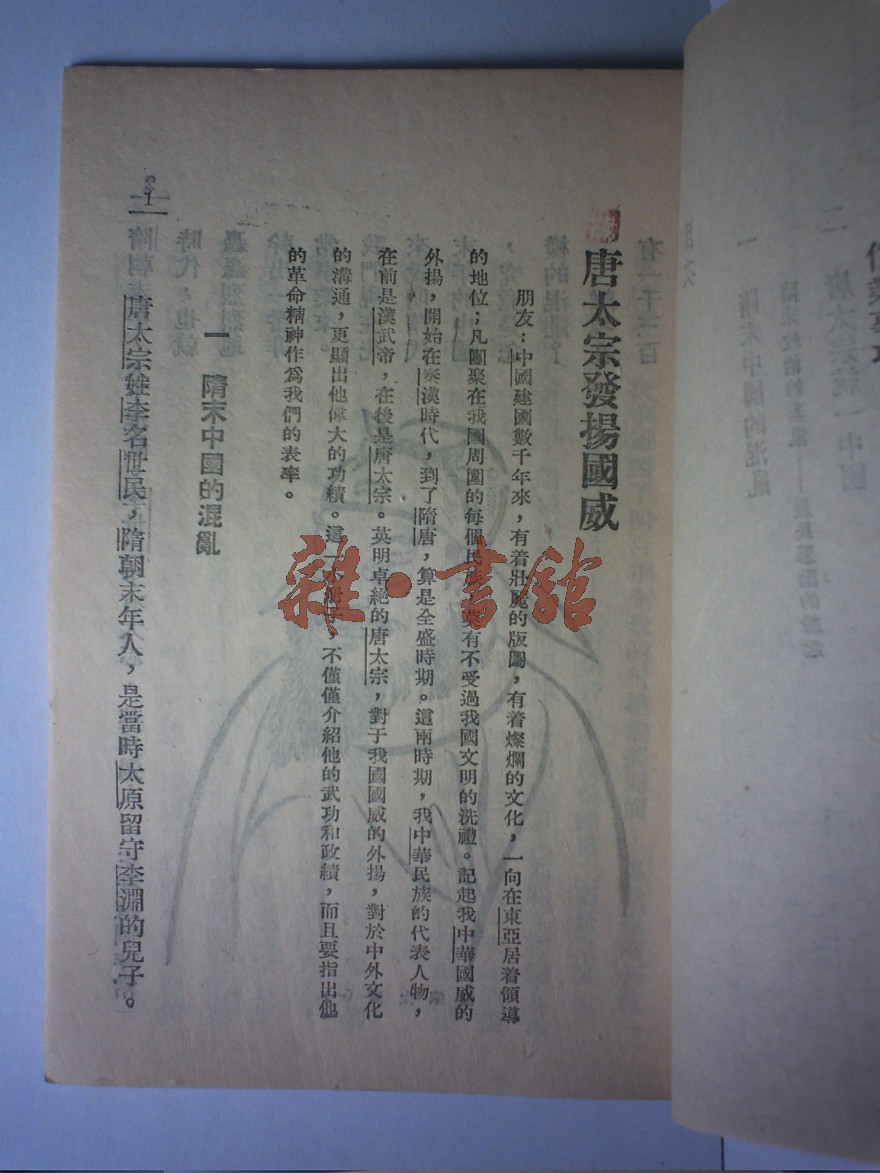 唐太宗發揚國威
朋友：中國建國數千年來，有着壯麗的版圖，有着燦爛的文化，一向在東亞居着領導
的地位；凡團聚在我國周圍的每個民族，莫有不受過我國文明的洗禮。記起我中華國威的
外揚，開始在秦漢時代，到了隋唐，算是全盛時期。這兩時期，我中華民族的代表人物，
在前是漢武帝，在後是唐太宗。英明卓絕的唐太宗，對于我國國威的外揚，對於中外文化
的溝通，更顯出他偉大的功績。這一小冊子，不僅僅介紹他的武功和政績，而且要指出他
的革命精神作爲我們的表率。
一 隋末中國的混亂
唐太宗姓李名世民，隋朝末年人，是當時太原留守李淵的兒子。
1
雜·書館